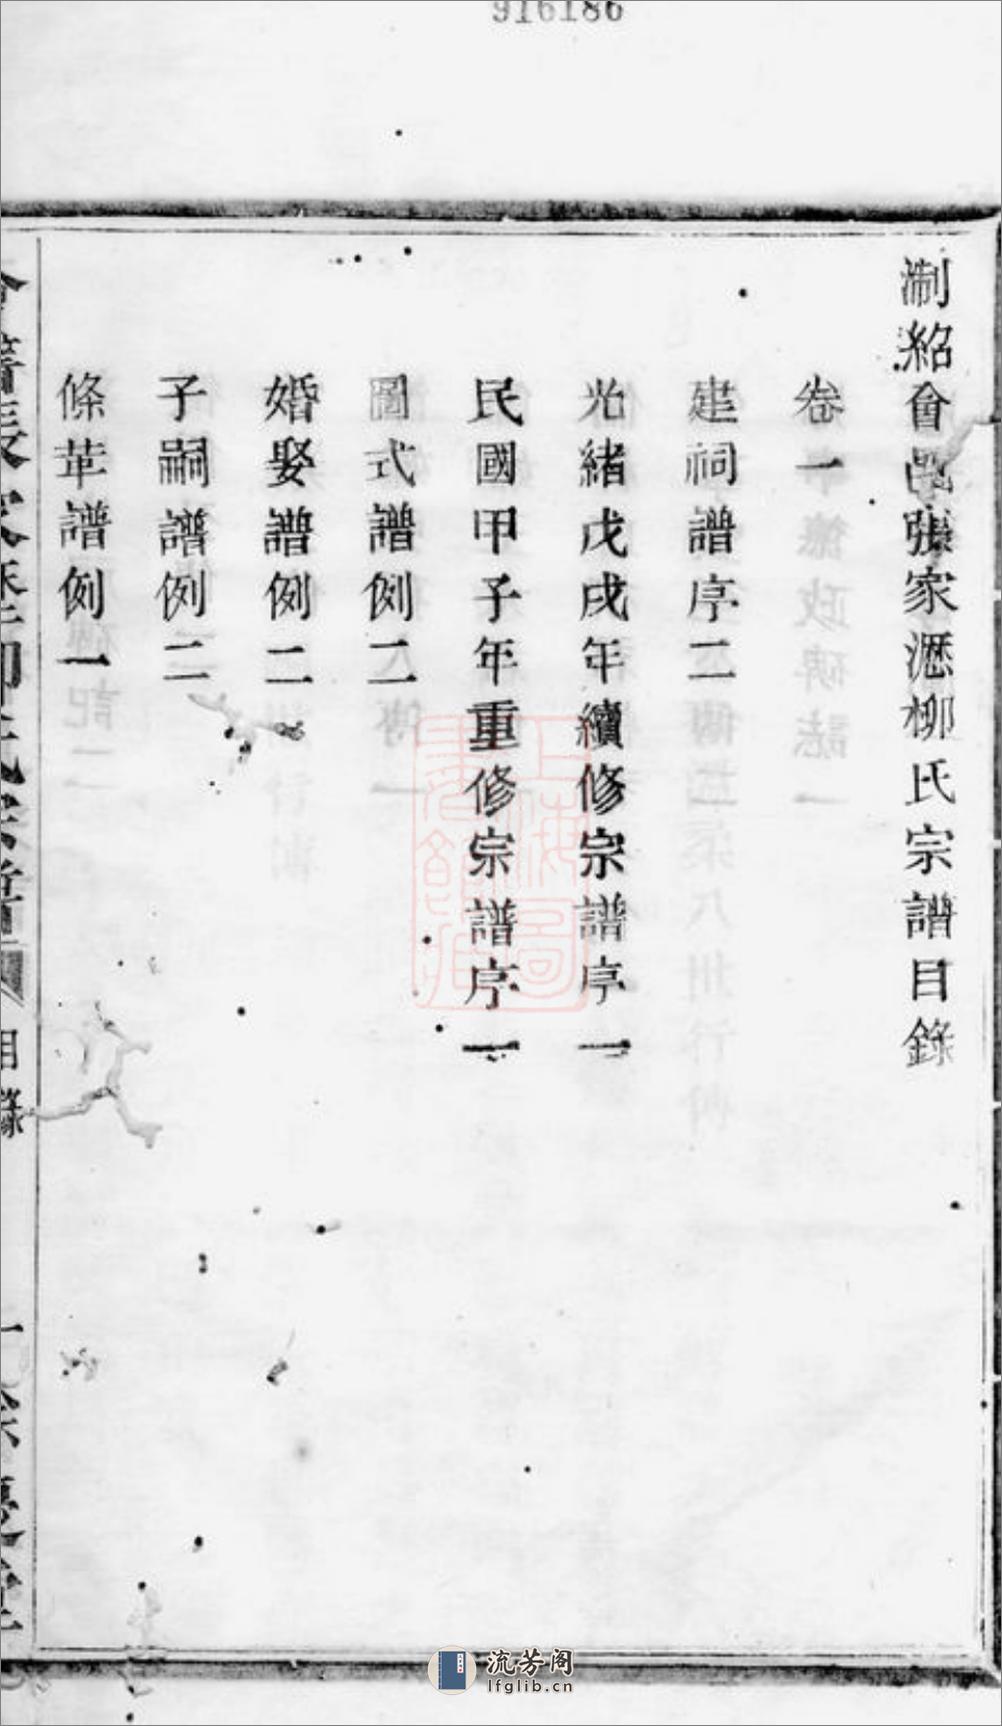 916186
淛紹會邑張家瀝柳氏宗譜目錄
卷一
建祠譜序二
光緒戊戌年續修宗譜序一
民國甲子年重修宗譜序一
圖式譜例二
婚娶譜例二
子嗣譜例二
條革譜例一
目錄
一
上海圖書館藏
流芳阁
lfglib.cn